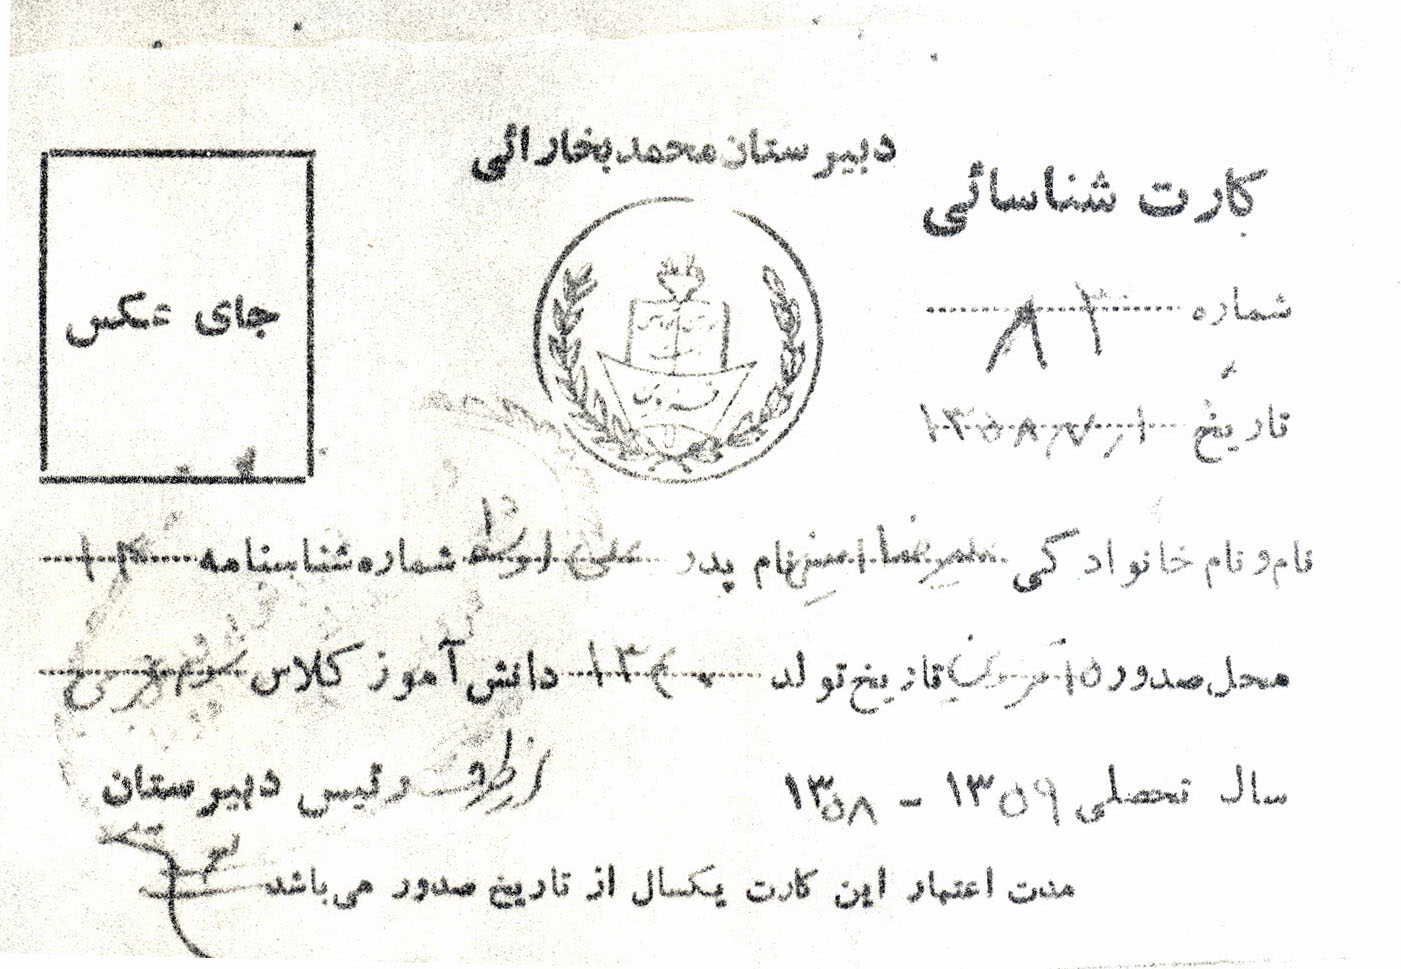 دبیرستان محمد بخارائی
کارت شناسائی
شماره ۸۳
تاریخ ۱۳۵۸/۷/۱
جای عکس
نام و نام خانوادگی علیرضا امینی نام پدر علی شماره شناسنامه
محل صدور تاریخ تولد ۱۳۴۰ دانش آموز کلاس سوم
سال تحصلی ۱۳۵۹ - ۱۳۵۸
از طرف رئیس دبیرستان
مدت اعتبار این کارت یکسال از تاریخ صدور می باشد